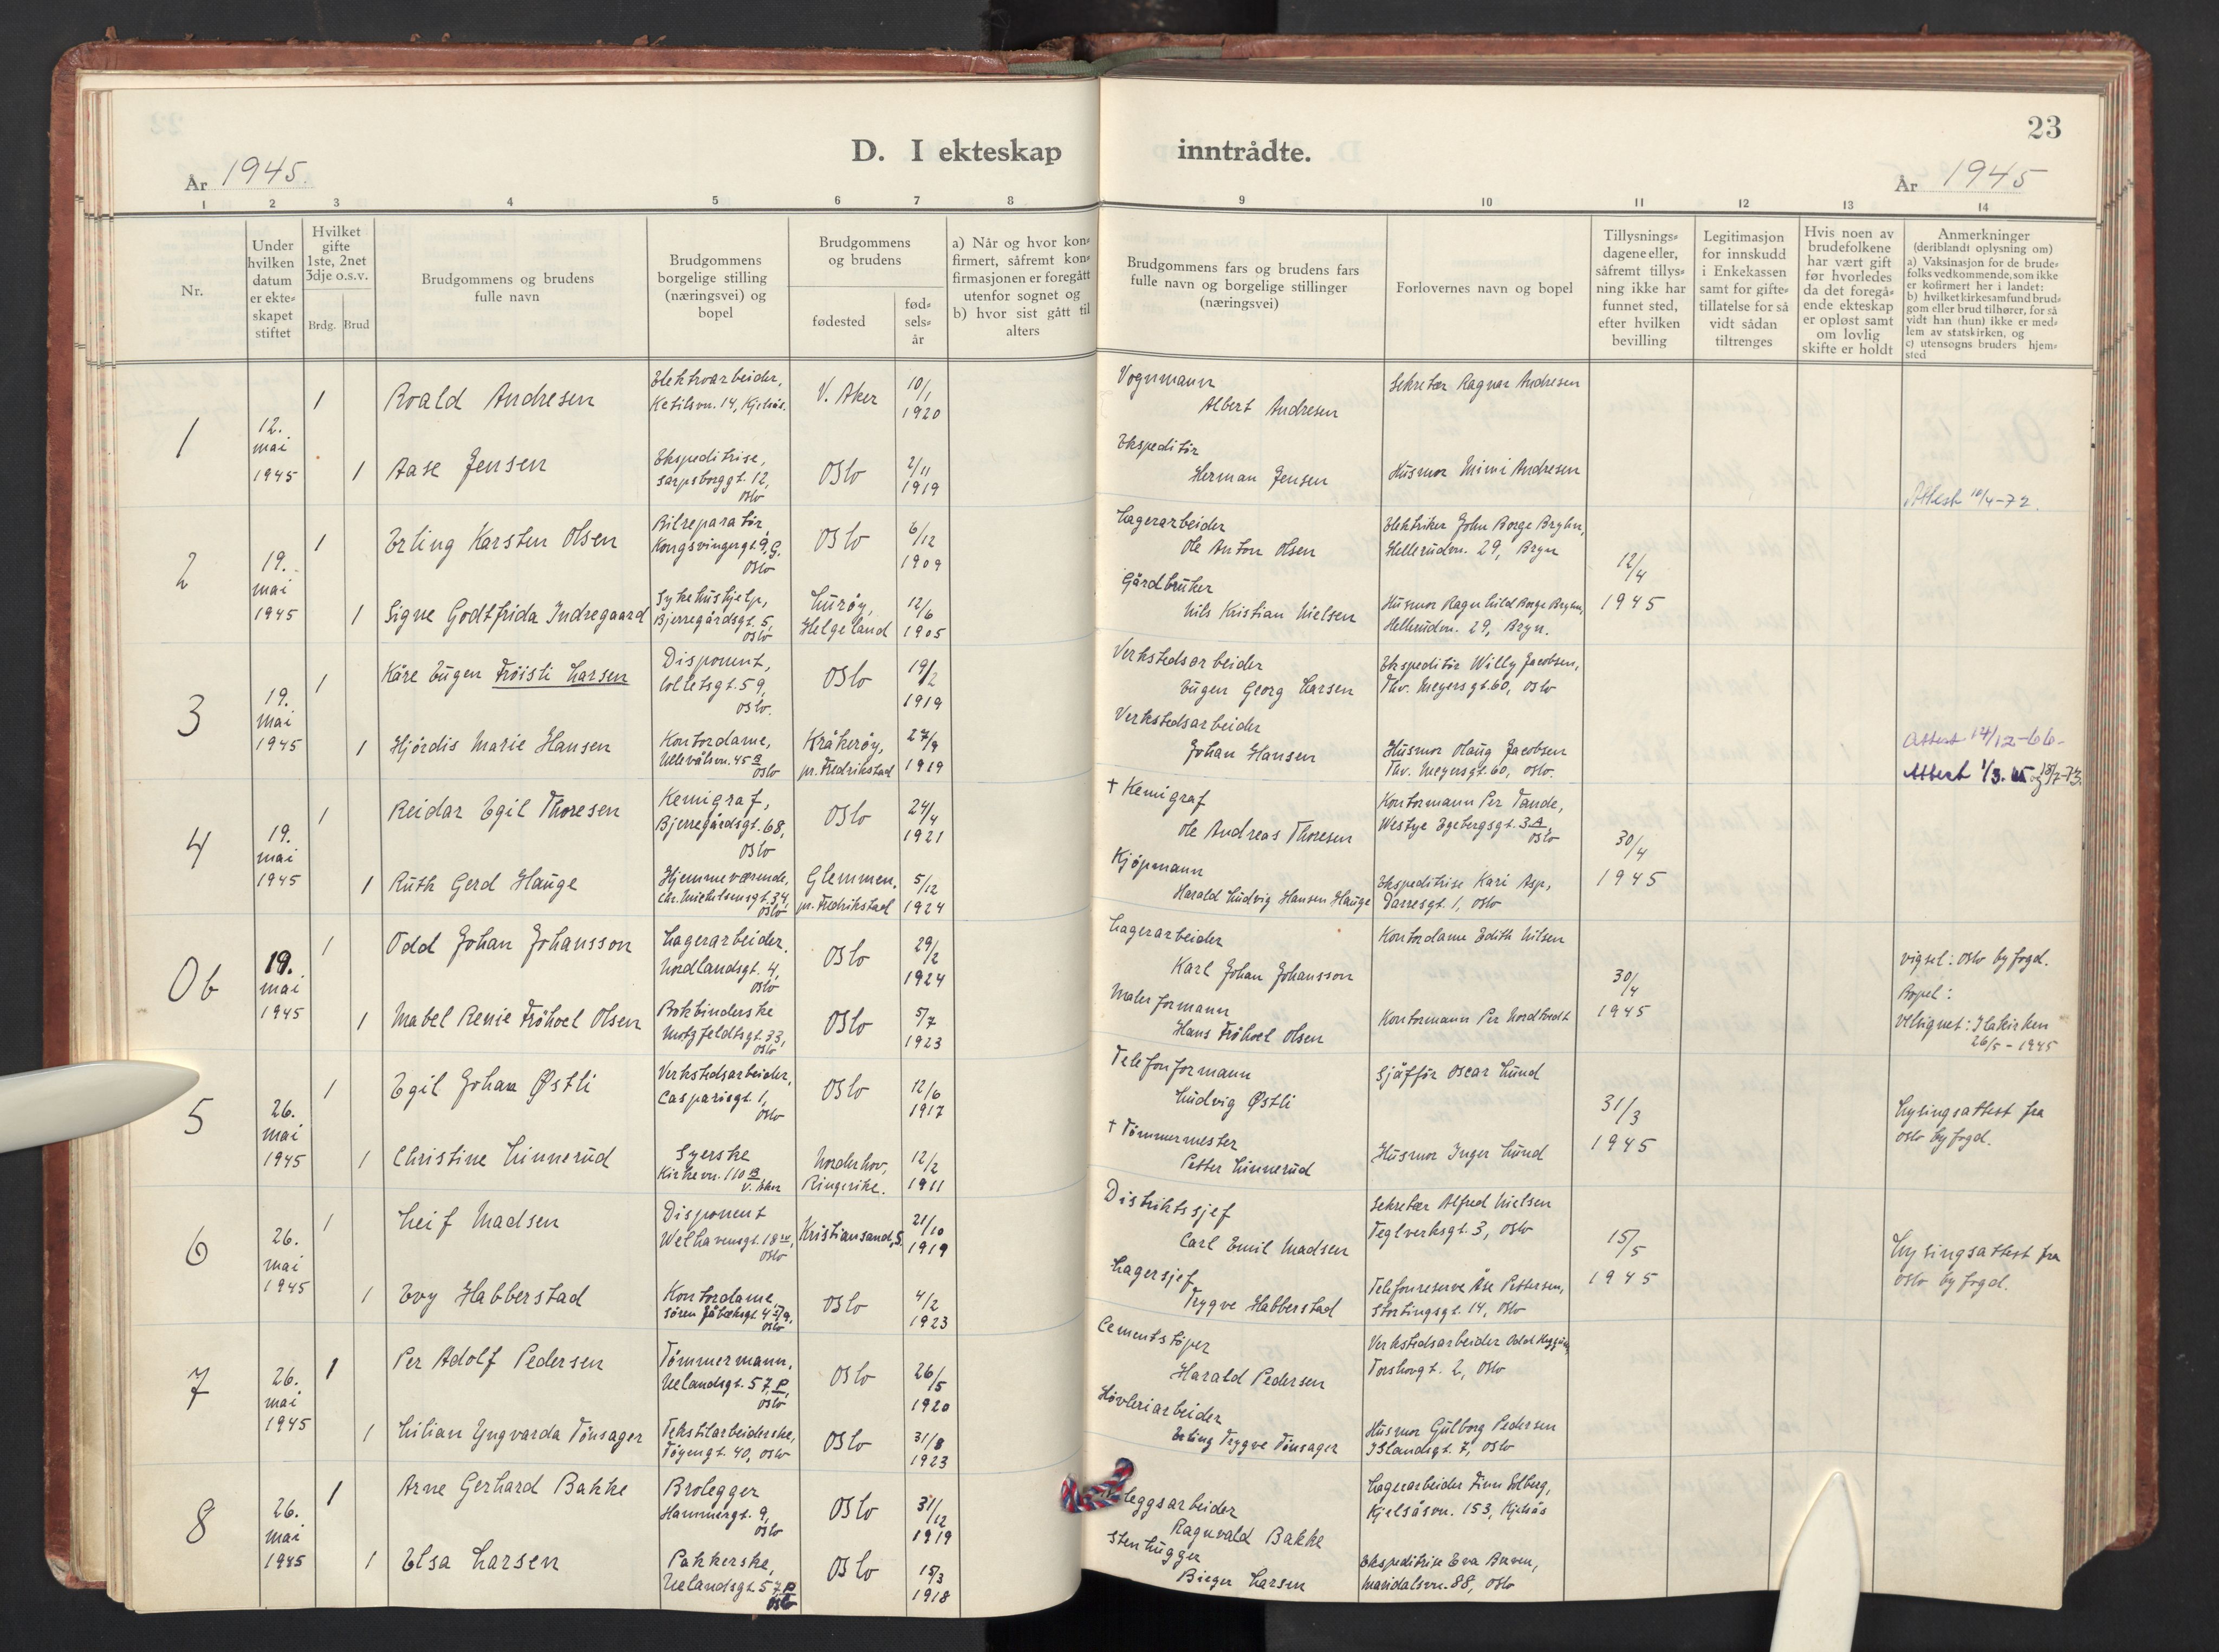 23
D. I ekteskap inntrådte.
År 1945.
År 1945
1 2 3 4 5 6 7 8 9 10 11 12 13 14
Nr.
Under
hvilken
datum
er ekte-
skapet
stiftet
Hvilket
gifte
1ste, 2net
3dje o.s.v.
Brdg. Brud
Brudgommens og brudens
fulle navn
Brudgommens
borgelige stilling
(næringsvei) og
bopel
Brudgommens
og brudens
fødested
fød-
sels-
år
a) Når og hvor kon-
firmert, såfremt kon-
firmasjonen er foregått
utenfor sognet og
b) hvor sist gått til
alters
Brudgommens fars og brudens fars
fulle navn og borgelige stillinger
(næringsvei)
Forlovernes navn og bopel
Tillysnings-
dagene eller,
såfremt tillys-
ning ikke har
funnet sted,
efter hvilken
bevilling
Legitimasjon
for innskudd
i Enkekassen
samt for gifte-
tillatelse for så
vidt sådan
tiltrenges
Hvis noen av
brudefolkene
har vært gift
før hvorledes
da det foregå-
ende ekteskap
er opløst samt
om lovlig
skifte er holdt
Anmerkninger
(deriblandt oplysning om)
a) Vaksinasjon for de brude-
folks vedkommende, som ikke
er kofirmert her i landet:
b) hvilket kirkesamfund brud-
gom eller brud tilhører, for så
vidt han (hun) ikke er med-
lem av statskirken, og
c) utensogns bruders hjem-
sted
1
12.
mai
1945
1
Roald Andresen
Elektroarbeider,
Ketilsvn. 14, Kjelsås.
V. Aker
10/1
1920
Vognmann
Albert Andresen
Sekretær Ragnar Andresen
1
Aase Jensen
Ekspeditrise,
Sarpsborggt. 12,
Oslo
Oslo
2/11
1919
Ekspeditør
Herman Jensen
Husmor Mimi Andresen
Attest 10/4-72.
2
19.
mai
1945
1
Erling Karsten Olsen
Bilreparatør,
Kongsvingergt. 9, G.
Oslo
Oslo
6/12
1909
Lagerarbeider
Ole Anton Olsen
Elektriker John Borge Bryhn,
Hellerudvn. 29, Bryn
12/4
1945
1
Signe Godtfrida Indregaard
Sykehushjelp,
Bjerregårdsgt. 5,
Oslo
Lurøy,
Helgeland
12/6
1905
Gårdbruker
Nils Kristian Nielsen
Husmor Ragnhild Borge Bryhn,
Hellerudvn. 29, Bryn.
3
19.
mai
1945
1
Kåre Eugen Frøisli Larsen
Disponent,
Colletsgt. 59,
Oslo.
Oslo
19/2
1919
Verkstedsarbeider
Eugen Georg Larsen
Ekspeditør Willy Jacobsen,
Thv. Meyersgt. 60, Oslo
1
Hjördis Marie Hansen
Kontordame,
Ullevålsvn. 45 B
Oslo
Kråkerøy,
pr. Fredrikstad
27/9
1919
Verkstedsarbeider
Johan Hansen
Husmor Olaug Jacobsen
Thv. Meyersgt. 60, Oslo.
Attest 14/12-66-
Attest 1/3.
4
19.
mai
1945
1
Reidar Egil Thoresen
Kemigraf,
Bjerregårdsgt. 68,
Oslo
Oslo
24/4
1921
† Kemigraf
Ole Andreas Thoresen
Kontormann Per Tande,
Westye Egebergsgt. 3 A,
Oslo
30/4
1945
1
Ruth Gerd Hauge
Hjemmeværende,
Chr. Michelsensgt. 34,
Oslo
Glemmen,
pr. Fredrikstad
5/12
1924
Kjøpmann
Harald Ludvig Hansen Hauge
Ekspeditrise Kari Asp,
Darresgt. 1, Oslo
0b
19.
mai
1945
1
Odd Johan Johansson
Lagerarbeider.
Nordlandsgt. 4,
Oslo
Oslo
29/2
1924
Lagerarbeider
Karl Johan Johansson
Kontordame Edith Nilsen
30/4
1945
vigsel: Oslo byfogd.
1
Mabel Renie Fröhoel Olsen
Bokbinderske
Motzfeldtsgt. 33,
Oslo
Oslo
5/7
1923
Malerformann
Hans Fröhoel Olsen
Kontormann Per Nordtvedt
Bopel:
velsignet: Ilakirken
26/5-1945
5
26.
mai
1945
1
Egil Johan Østli
Verkstedsarbeider,
Casparisgt. 1,
Oslo
Oslo
12/6
1917
Telefonformann
Ludvig Østli
Sjåffør Oscar Lund
31/3
1945
Lysingsattest fra
Oslo byfogd.
1
Christine Linnerud
Syerske
Kirkevn. 110 B
V. Aker
Norderhov,
Ringerike.
12/2
1911
† Tømmermester
Petter Linnerud
Husmor Inger Lund
6
26.
mai
1945
1
Leif Madsen
Disponent
Welhavensgt. 18 IV,
Oslo
Kristiansand, S.
21/10
1919
Distriktssjef
Carl Emil Madsen
Sekretær Alfred Nielsen
Teglverksgt. 3, Oslo
15/5
1945
Lysingsattest fra
Oslo byfogd.
1
Evy Habberstad
Kontordame,
Søren Jåbæksgt. 4
Oslo
Oslo
4/2
1923
Lagersjef
Trygve Habberstad
Telefonreserve Åse Pettersen,
Stortingsgt. 14, Oslo
7
26.
mai
1945
1
Per Adolf Pedersen
Tømmermann,
Uelandsgt. 57 P,
Oslo
Oslo
26/5
1920
Cementstøper
Harald Pedersen
Verkstedsarbeider Odd
Torshovgt. 2, Oslo
1
Lilian Yngvarda Tönsager
Tekstilarbeiderske,
Tøyengt. 40, Oslo
Oslo
31/8
1923
Høvleriarbeider
Erling Trygve Tönsager
Husmor Gulborg Pedersen
Islandsgt. 7, Oslo
8
26.
mai
1945
1
Arne Gerhard Bakke
Brolegger
Hammergt. 9,
Oslo
Oslo
31/12
1919
leggsarbeider
Ragnvald Bakke
Lagerarbeider Finn Solberg,
Kjelsåsvn. 153, Kjelsås
1
Elsa Larsen
Pakkerske,
Uelandsgt. 57 P
Oslo
Oslo
15/3
1918
Stenhugger
Birger Larsen
Ekspeditrise Eva
Maridalsvn. 88, Oslo